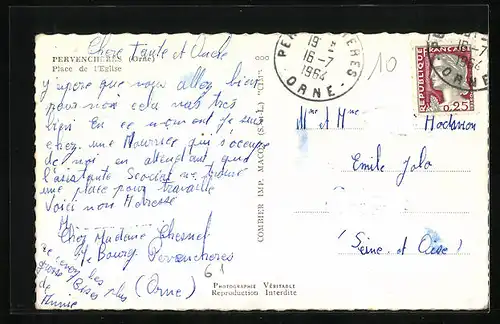 PERVENCHERES (Orne)
Place de l'Eglise
Chere Tante et Oncle
J'espere que vous allez bien
pour moi cela vas très
bien En ce moment je suis
chez une Nourrice qui s'occupe
de moi en attendant que
l'assistante Social me trouve
une place pour travaille
Voici mon Adresse
M
Chez Madame Chesnel
le Bourg Pervencheres
(Orne)
61
je envoy les
gros Bises
de
COMBIER IMP. MACON (S.-&-L.) "CIM"
PHOTOGRAPHIE VÉRITABLE
Reproduction Interdite
PERVENCHERES
19
16-7
1964
ORNE
10
16-7
1964
ORNE
REPUBLIQUE
FRANÇAISE
0,25
Mme et Mme
Emile Zola
(Seine et Oise)